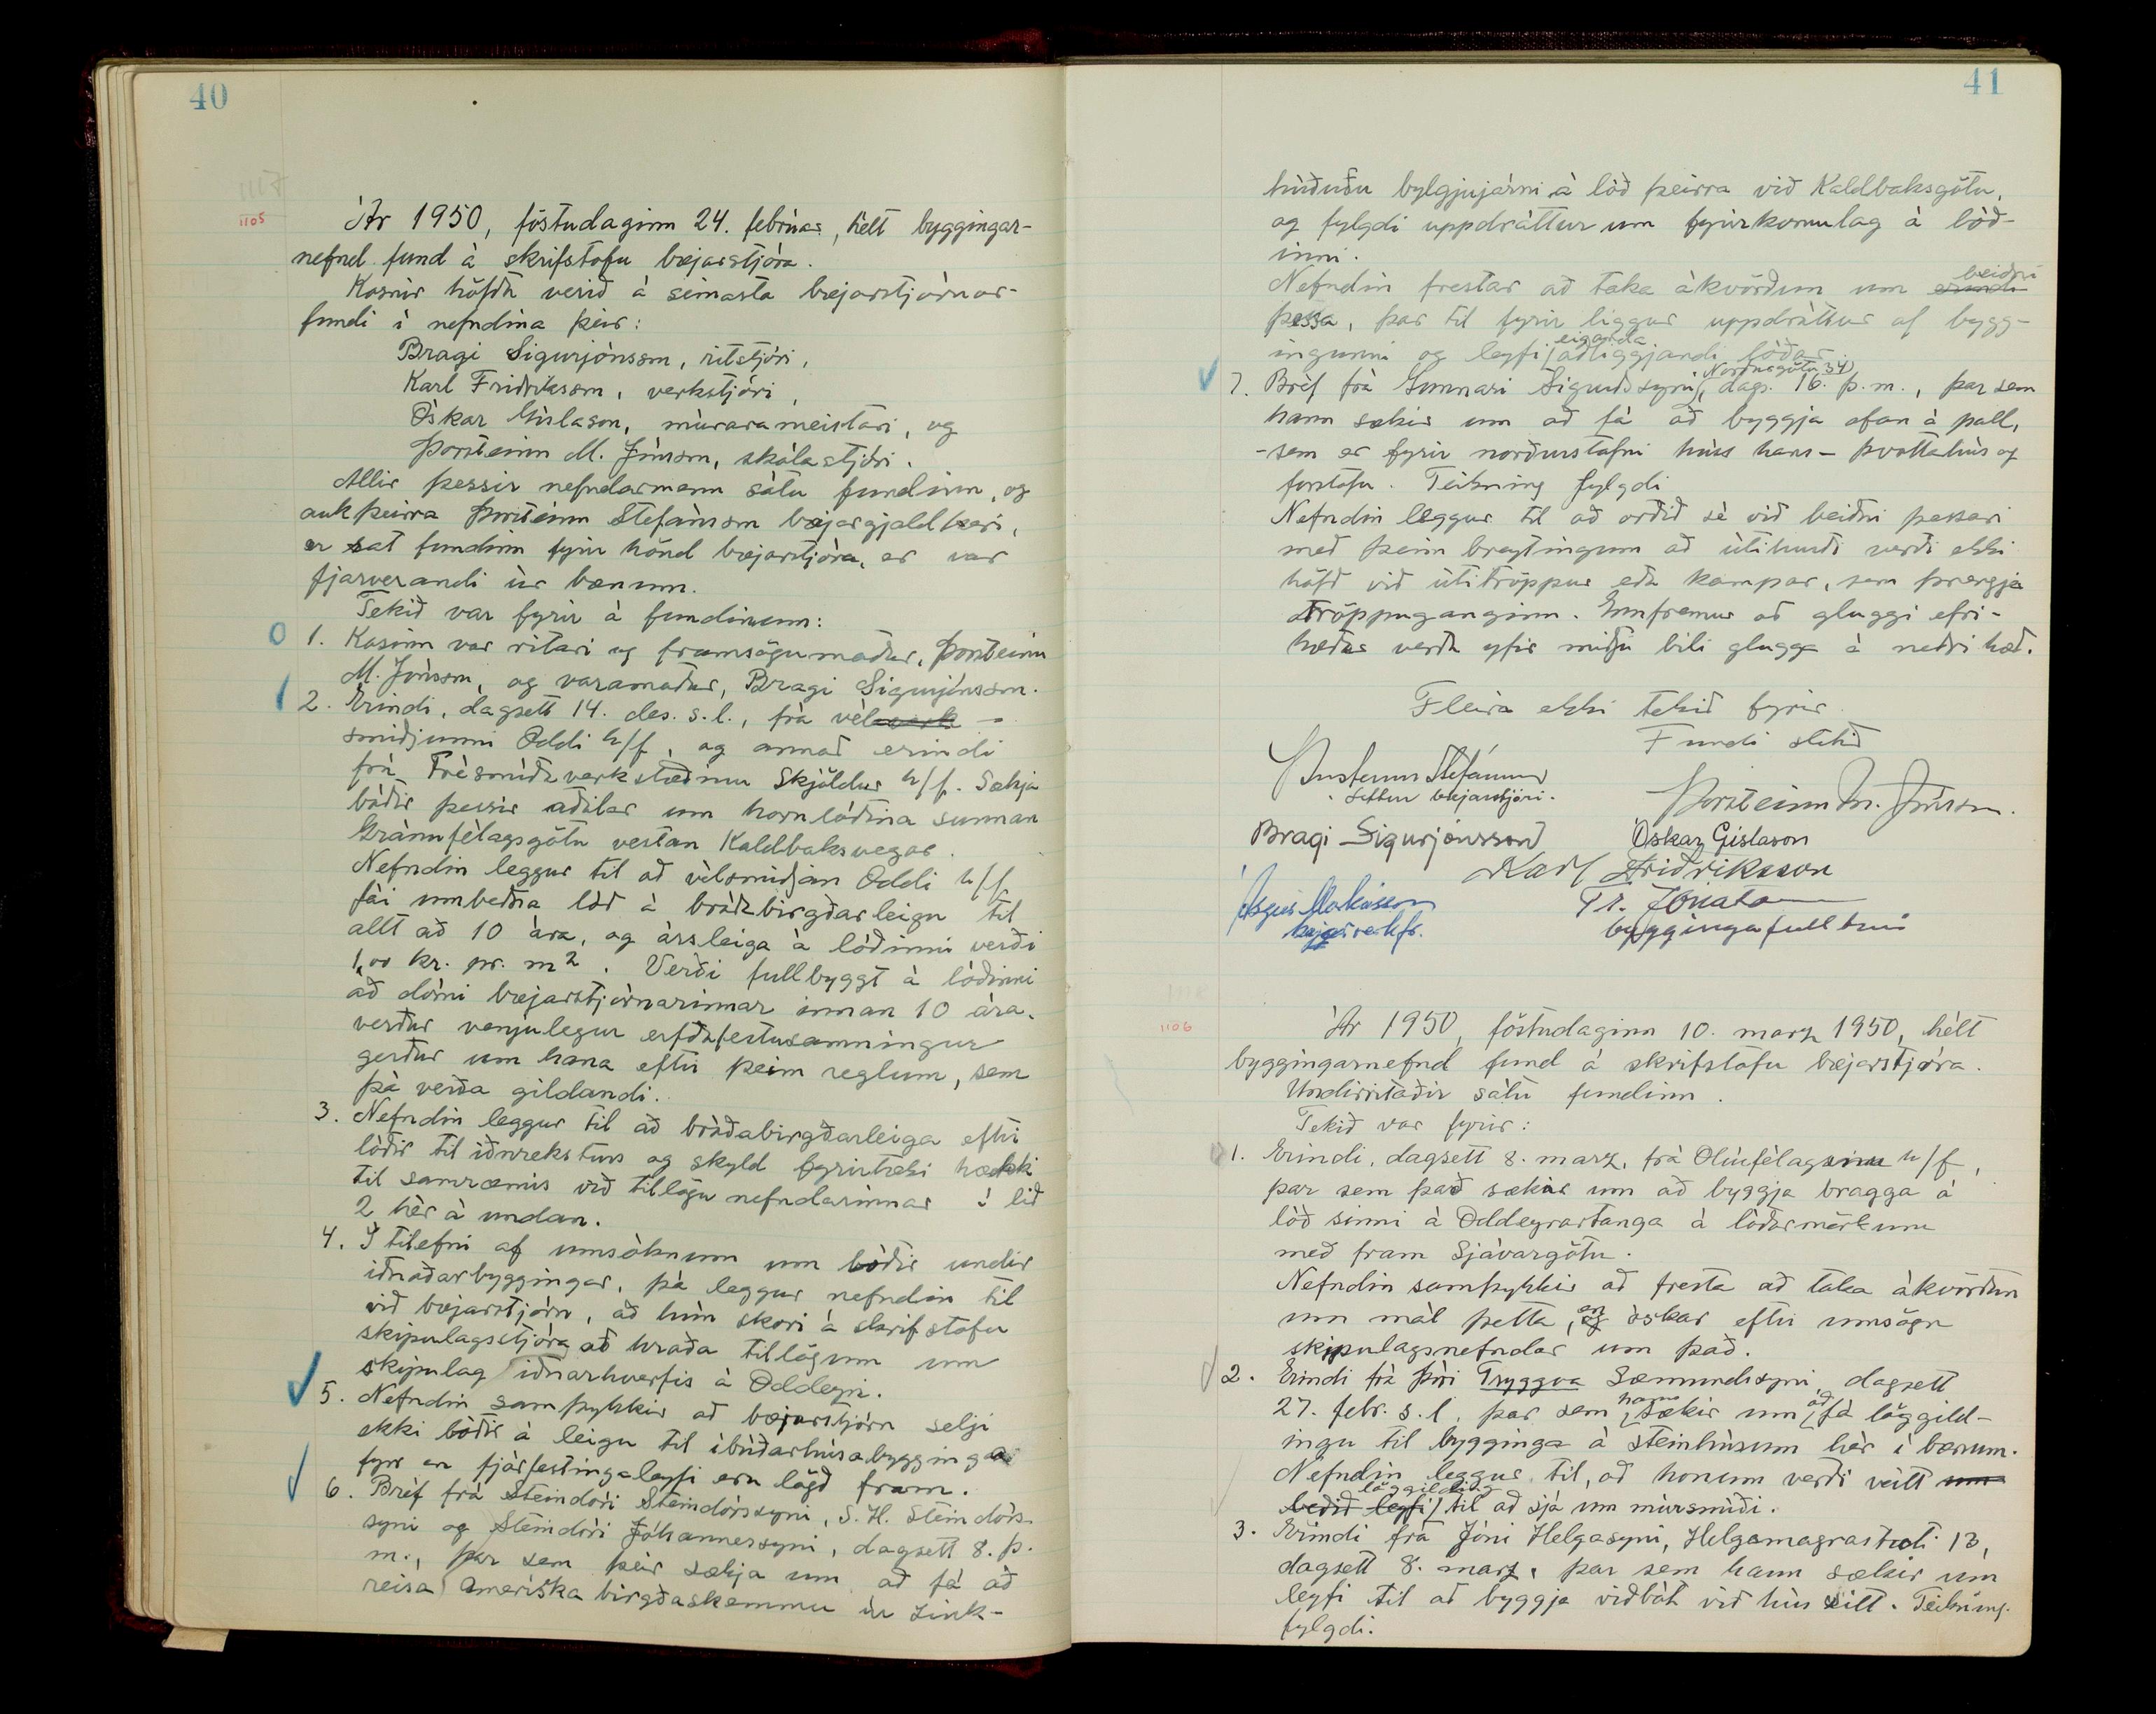 40
1117
1105
Ár 1950, föstudaginn 24. febrúar, hélt byggingar-
nefnd fund á skrifstofu bæjarstjóra.
Kosnir höfðu verið á seinasta bæjarstjórnar-
fundi í nefndina þeir:
Bragi Sigurjónsson, ritstjóri,
Karl Friðriksson, verkstjóri,
Óskar Gíslason, múrarameistari, og
Þorsteinn M. Jónsson, skólastjóri.
Allir þessir nefndarmenn sátu fundinn, og
auk þeirra Þorsteinn Stefánsson bæjargjaldkeri,
er sat fundinn fyrir hönd bæjarstjóra, er var
fjarverandi úr bænum.
Tekið var fyrir á fundinum:
1. Kosinn var ritari og framsögumaður, Þorsteinn
M. Jónsson, og varamaður, Bragi Sigurjónsson.
2. Erindi, dagsett 14. des. s.l., frá vélverk-
smiðjunni Oddi h/f, og annað erindi
frá Trésmíðaverkstæðinu Skjöldur h/f. Sækja
báðir þessir aðilar um hornlóðina sunnan
Gránufélagsgötu vestan Kaldbaksvegar.
Nefndin leggur til að vélsmiðjan Oddi h/f
fái umbeðna lóð á bráðabirgðarleigu til
allt að 10 ára, og ársleiga á lóðinni verði
1,00 kr. pr. m2. Verði fullbyggt á lóðinni
að dómi bæjarstjórnarinnar innan 10 ára,
verður venjulegur erfðafestusamningur
gerður um hana eftir þeim reglum, sem
þá verða gildandi.
3. Nefndin leggur til að bráðabirgðarleiga eftir
lóðir til iðnreksturs og skyld fyrirtæki hækki
til samræmis við tillögu nefndarinnar í lið
2 hér á undan.
4. Í tilefni af umsóknum um lóðir undir
iðnaðarbyggingar, þá leggur nefndin til
við bæjarstjórn, að hún skori á skrifstofu
skipulagsstjóra að hraða tillögum um
skipulag iðnarhverfis á Oddeyri.
5. Nefndin samþykkir að bæjarstjórn selji
ekki lóðir á leigu til íbúðarhúsabygginga
fyrr en fjárfestingaleyfi eru lögð fram.
6. Bréf frá Steindóri Steindórssyni, S. H. Steindórs-
syni og Steindóri Jóhannessyni, dagsett 8. þ.
m., þar sem þeir sækja um að fá að
reisa ameríska birgðaskemmu úr zink-
41
húðuðu bylgjujárni á lóð þeirra við Kaldbaksgötu,
og fylgdi uppdráttur um fyrirkomulag á lóð-
inni.
beiðni
Nefndin frestar að taka ákvörðun um erindi
þessa, þar til fyrir liggur uppdráttur af bygg-
eiganda
ingunni og leyfi aðliggjandi lóðar.
Norðurgötu 34
7. Bréf frá Gunnari Sigurðssyni, dags. 16. þ.m., þar sem
hann sækir um að fá að byggja ofan á pall,
-sem er fyrir norðurstafni húss hans- þvottahús og
forstofu. Teikning fylgdi
Nefndin leggur til að orðið sé við beiðni þessari
með þeim breytingum að útihurð verði ekki
höfð við útitröppur eða kampar, sem þrengja
tröppuganginn. Ennfremur að gluggi efri-
hæðar verði yfir miðju bili glugga á neðri hæð.
Fleira ekki tekið fyrir.
Fundi slitið
Þorsteinn Stefánsson
settur bæjarstjóri.
Þorsteinn M. Jónsson.
Bragi Sigurjónsson
Óskar Gíslason
Karl Friðriksson
Ásgeir Markússon
bæjarverkfr.
Tr. Jónata
byggingafulltrúi
1106
Ár 1950, föstudaginn 10. marz 1950, hélt
byggingarnefnd fund á skrifstofu bæjarstjóra.
Undirritaðir sátu fundinn.
Tekið var fyrir:
1. Erindi, dagsett 8. marz, frá Olíufélaginu h/f,
þar sem það sækir um að byggja bragga á
lóð sinni á Oddeyrartanga á lóðarmörkum
með fram Sjávargötu.
Nefndin samþykkir að fresta að taka ákvörðun
um mál þetta, en óskar eftir umsögn
skipulagsnefndar um það.
2. Erindi frá Þóri Tryggva Sæmundssyni, dagsett
27. febr. s.l. þar sem hann sækir um að fá löggild-
ingu til bygginga á steinhúsum hér í bænum.
Nefndin leggur til, að honum verði veitt um-
löggilding
beðið leyfi til að sjá um múrsmíði.
3. Erindi frá Jóni Helgasyni, Helgamagrastræti 13,
dagsett 8. marz, þar sem hann sækir um
leyfi til að byggja viðbót við hús sitt. Teikning
fylgdi.